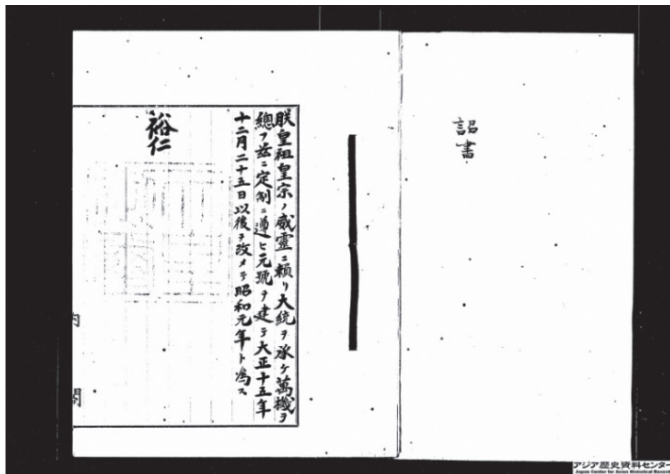 詔書
朕皇祖皇宗ノ威靈ニ頼リ大統ヲ承ケ萬機ヲ
總フ茲ニ定制ニ遵ヒ元號ヲ建テ大正十五年
十二月二十五日以後ヲ改メテ昭和元年ト為ス
裕仁
内閣
アジア歴史資料センター
Japan Center for Asian Historical Records